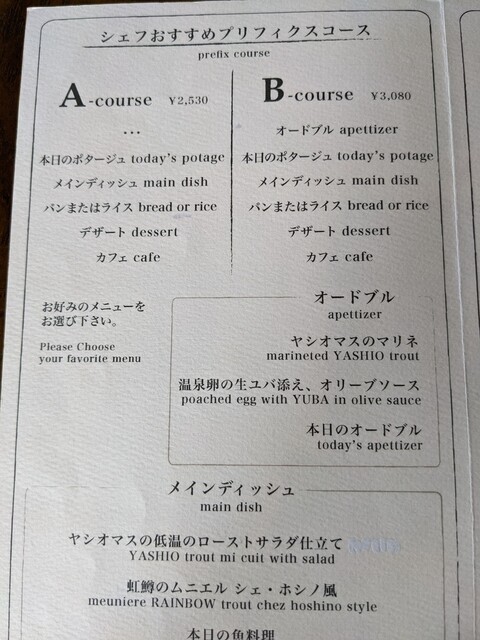 シェフおすすめプリフィクスコース
prefix course
A-course ¥2,530
...
本日のポタージュ today's potage
メインディッシュ main dish
パンまたはライス bread or rice
デザート dessert
カフェ cafe
B-course ¥3,080
オードブル apettizer
本日のポタージュ today's potage
メインディッシュ main dish
パンまたはライス bread or rice
デザート dessert
カフェ cafe
お好みのメニューを
お選び下さい。
Please Choose
your favorite menu
オードブル
apettizer
ヤシオマスのマリネ
marineted YASHIO trout
温泉卵の生ユバ添え、オリーブソース
poached egg with YUBA in olive sauce
本日のオードブル
today's apettizer
メインディッシュ
main dish
ヤシオマスの低温のローストサラダ仕立て
YASHIO trout mi cuit with salad
虹鱒のムニエル シェ・ホシノ風
meuniere RAINBOW trout chez hoshino style
本日の魚料理